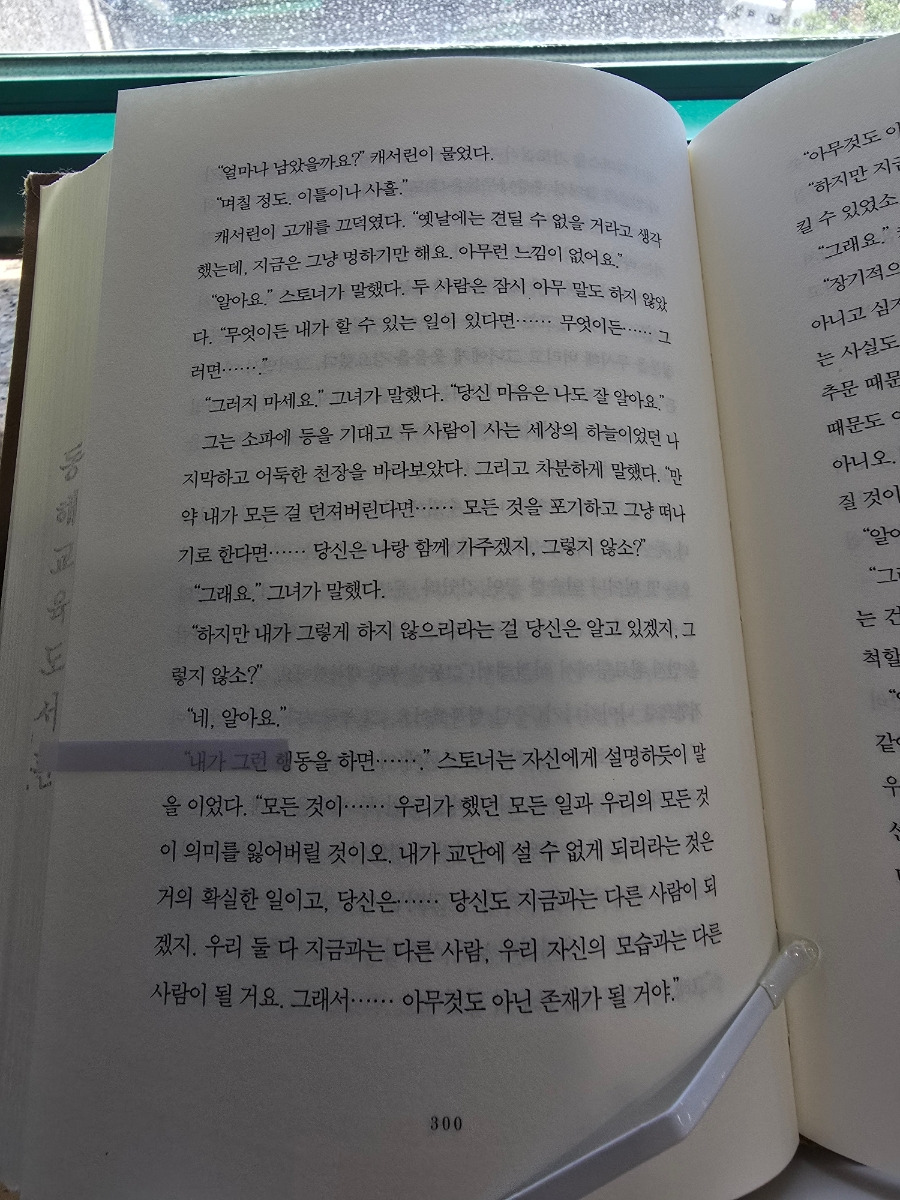 "얼마나 남았을까요?" 캐서린이 물었다.
"며칠 정도. 이틀이나 사흘."
캐서린이 고개를 끄덕였다. "옛날에는 견딜 수 없을 거라고 생각
했는데, 지금은 그냥 멍하기만 해요. 아무런 느낌이 없어요."
"알아요." 스토너가 말했다. 두 사람은 잠시 아무 말도 하지 않았
다. "무엇이든 내가 할 수 있는 일이 있다면…… 무엇이든…… 그
러면……."
"그러지 마세요." 그녀가 말했다. "당신 마음은 나도 잘 알아요."
그는 소파에 등을 기대고 두 사람이 사는 세상의 하늘이었던 나
지막하고 어둑한 천장을 바라보았다. 그리고 차분하게 말했다. "만
약 내가 모든 걸 던져버린다면…… 모든 것을 포기하고 그냥 떠나
기로 한다면…… 당신은 나랑 함께 가주겠지, 그렇지 않소?"
"그래요." 그녀가 말했다.
"하지만 내가 그렇게 하지 않으리라는 걸 당신은 알고 있겠지, 그
렇지 않소?"
"네, 알아요."
"내가 그런 행동을 하면……." 스토너는 자신에게 설명하듯이 말
을 이었다. "모든 것이…… 우리가 했던 모든 일과 우리의 모든 것
이 의미를 잃어버릴 것이오. 내가 교단에 설 수 없게 되리라는 것은
거의 확실한 일이고, 당신은…… 당신도 지금과는 다른 사람이 되
겠지. 우리 둘 다 지금과는 다른 사람, 우리 자신의 모습과는 다른
사람이 될 거요. 그래서…… 아무것도 아닌 존재가 될 거야."
300
동해교육도서관
"아무것도
"하지만
킬 수 있었소
"그래요."
"장기적으
아니고
는 사실도
추문 때문
때문도
아니오.
질 것이
는 건
척할
같이